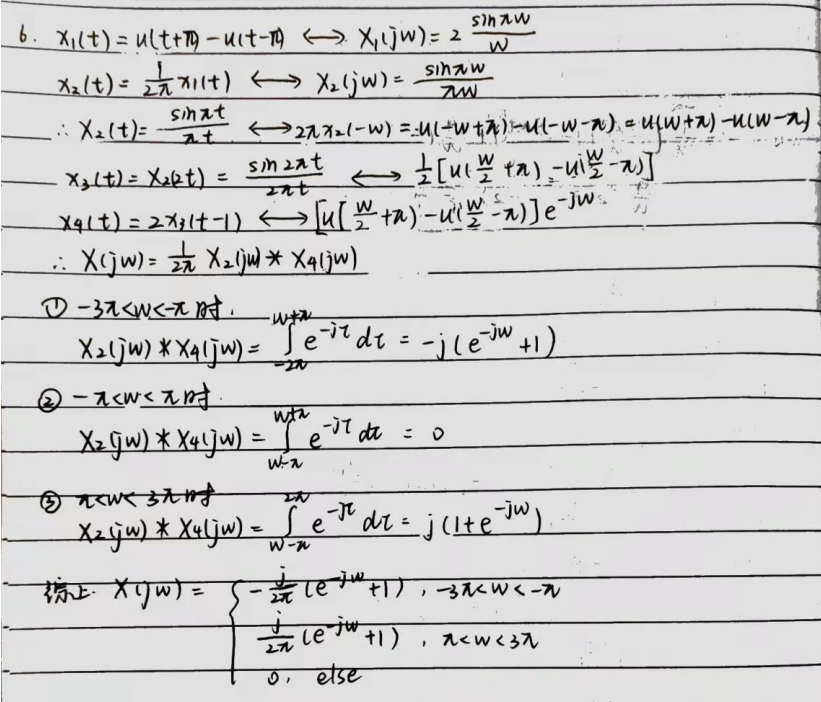 6. x₁(t) = u(t+π) - u(t-π) ⟷ X₁(jw) = 2 sinπw/w
x₂(t) = 1/2π x₁(t) ⟷ X₂(jw) = sinπw/πw
∴ X₂(t) = sinπt/πt ⟷ 2πx₂(-w) = u(-w+π) - u(-w-π) = u(w+π) - u(w-π)
x₃(t) = X₂(2t) = sin2πt/2πt ⟷ 1/2[u(w/2+π) - u(w/2-π)]
x₄(t) = 2x₃(t-1) ⟷ [u[w/2+π) - u(w/2-π)]e^-jw
∴ X(jw) = 1/2π X₂(jw) * X₄(jw)
① -3π<w<-π时.
X₂(jw) * X₄(jw) = ∫_{-2π}^{w+π} e^-jτ dτ = -j(e^-jw+1)
② -π<w<π时.
X₂(jw) * X₄(jw) = ∫_{w-π}^{w+π} e^-jτ dτ = 0
③ π<w<3π时
X₂(jw) * X₄(jw) = ∫_{w-π}^{2π} e^-jτ dτ = j(1+e^-jw)
综上. X(jw) = { -j/2π (e^-jw+1), -3π<w<-π
j/2π (e^-jw+1), π<w<3π
0, else